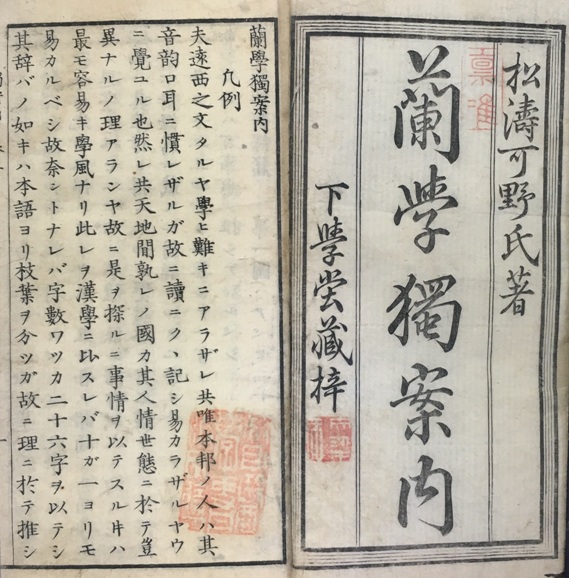 松濤可野氏著
稟准
蘭學獨案内
下學堂藏梓
蘭學獨案内
凡例
夫遠西之文タルヤ學ヒ難キニアラザレ共唯本邦ノ人ハ其
音韵口耳ニ慣レザルガ故ニ讀ニクヽ記シ易カラザルヤウ
ニ覺ユル也然レ共天地間孰レノ國カ其人情世態ニ於テ豈
異ナルノ理アランヤ故ニ是ヲ探ルニ事情ヲ以テスル片ハ
最モ容易キ學風ナリ此レヲ漢學ニ比スレバ十ガ一ヨリモ
易カルベシ故奈シトナレバ字數ワツカ二十六字ヲ以テシ
其辞バノ如キハ本語ヨリ枝葉ヲ分ツガ故ニ理ニ於テ推シ